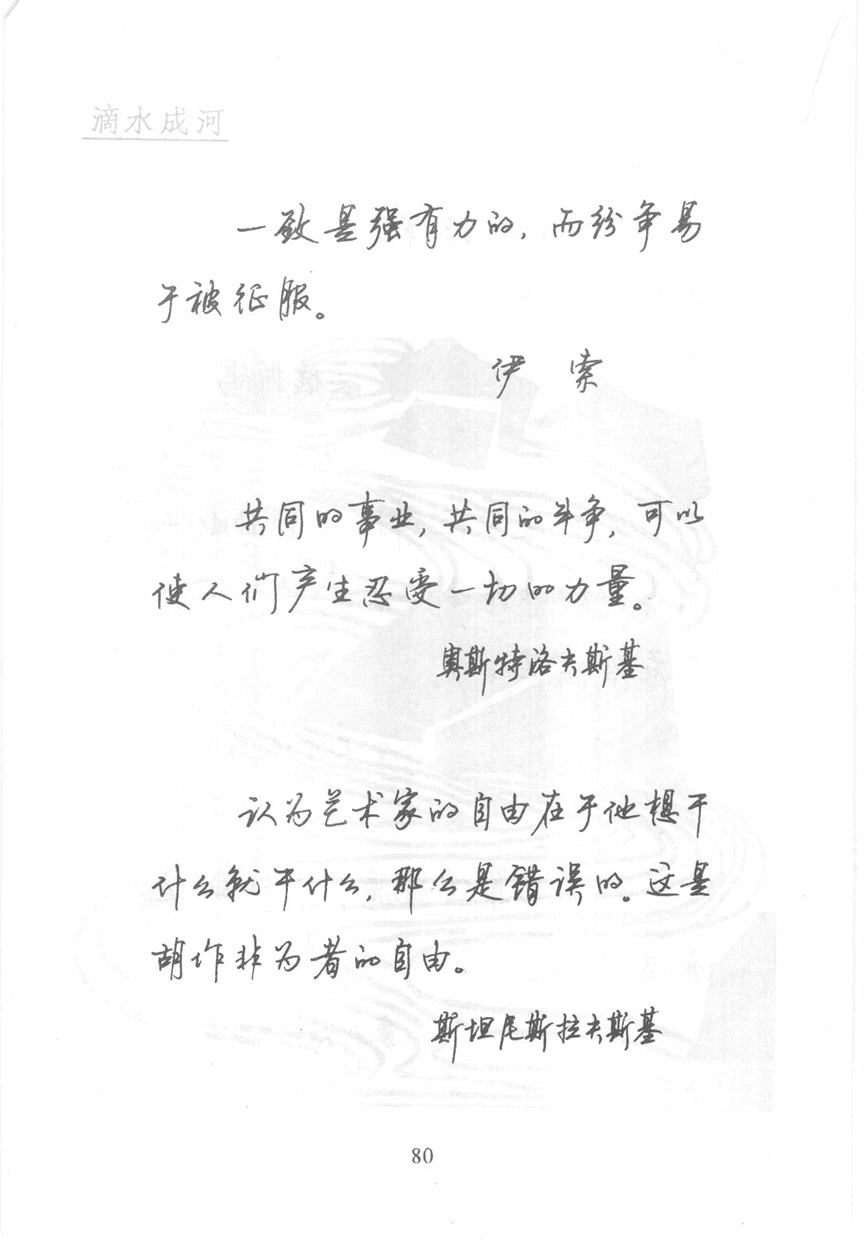 滴水成河
一致是强有力的，而纷争易
于被征服。
伊 索
共同的事业，共同的斗争，可以
使人们产生忍受一切的力量。
奥斯特洛夫斯基
认为艺术家的自由在于他想干
什么就干什么，那么是错误的。这是
胡作非为者的自由。
斯坦尼斯拉夫斯基
80